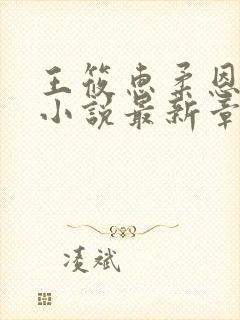 王筱惠柔恩
小说最新章
凌斌